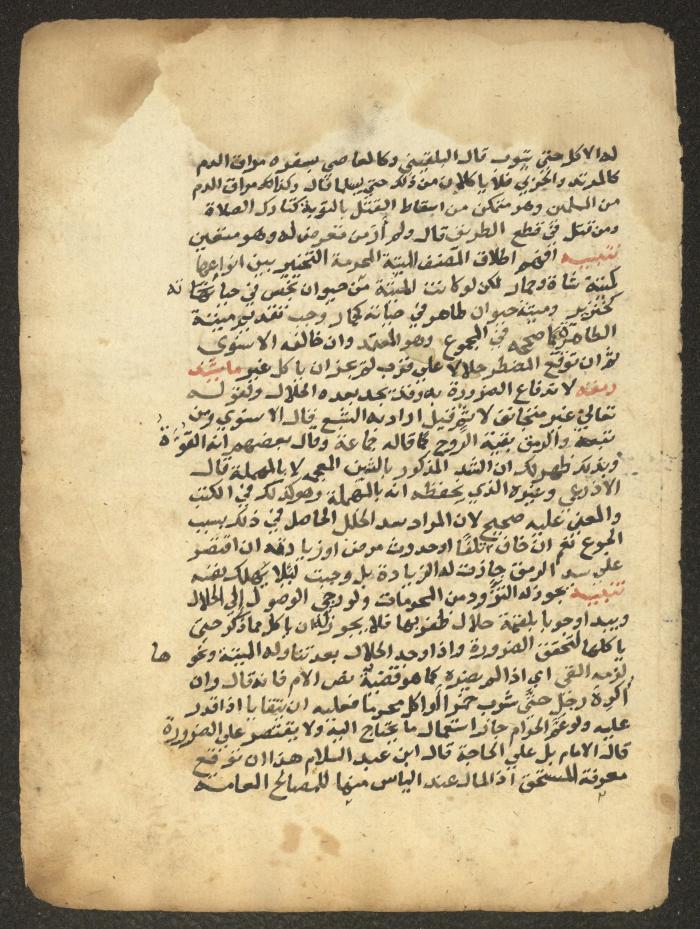 له الاكل حتى يتوب قال البلقيني وكالعاصي بسفره مراق الدم
كالمرتد والحربي فلا ياكلان من ذلك حتى يسلما قال وكذا مراق الدم
من المسلمين وهو متمكن من اسقاط القتل بالتوبة كتارك الصلاة
ومن قتل في قطع الطريق قال ولم أر من تعرض له وهو متعين
تنبيه افهم اطلاق المصنف الميتة المحرمة التخيير بين انواعها
كميتة شاة وحمار لكن لو كانت الميتة من حيوان نجس في حياته
كخنزير وميتة حيوان طاهر في حياته كحمار وجب تقديم ميتة
الطاهر كما صححه في المجموع وهو المعتمد وان خالفه الاسنوي
ثم ان توقع المضطر حلالا على قرب لم يجز ان ياكل غير ما يسد
رمقه لاندفاع الضرورة به وقد يجد بعده الحلال ولقوله
تعالى غير متجانف لاثم قيل اراد به الشبع قال الاسنوي ومن
تبعه والرمق بقية الروح كما قاله جماعة وقال بعضهم انه القوة
وبذلك ظهر لك ان الشد المذكور بالشين المعجمة لا بالمهملة قال
الاذرعي وغيره الذي نحفظه انه بالمهملة وهو كذلك في الكتب
والمعنى عليه صحيح لان المراد سد الخلل الحاصل في ذلك بسبب
الجوع نعم ان خاف تلفا او حدوث مرض او زيادته ان اقتصر
على سد الرمق جازت له الزيادة بل وجبت لئلا يهلك نفسه
تنبيه يجوز له التزود من المحرمات ولو رجى الوصول الى الحلال
ويبدا وجوبا بلقمة حلال ظفر بها فلا يجوز له ان ياكل مما ذكر حتى
ياكلها لتحقق الضرورة واذا وجد الحلال بعد تناوله الميتة ونحوها
لزمه القي اي اذا لم يضره كما هو قضية نص الام فانه قال وان
اكره رجل حتى شرب خمرا او اكل محرما فعليه ان يتقايا اذا قدر
عليه ولو عم الحرام جاز استعمال ما يحتاج اليه ولا يقتصر على الضرورة
قال الامام بل على الحاجة قال ابن عبد السلام هذا ان توقع
معرفة المستحق اذ المال عند الياس منها للمصالح العامة